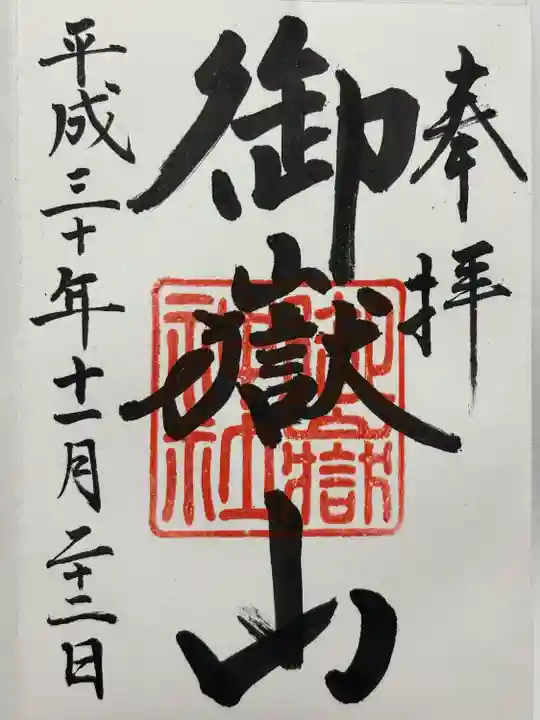 奉拝
御嶽山
御嶽
神社
平成三十年十一月二十二日